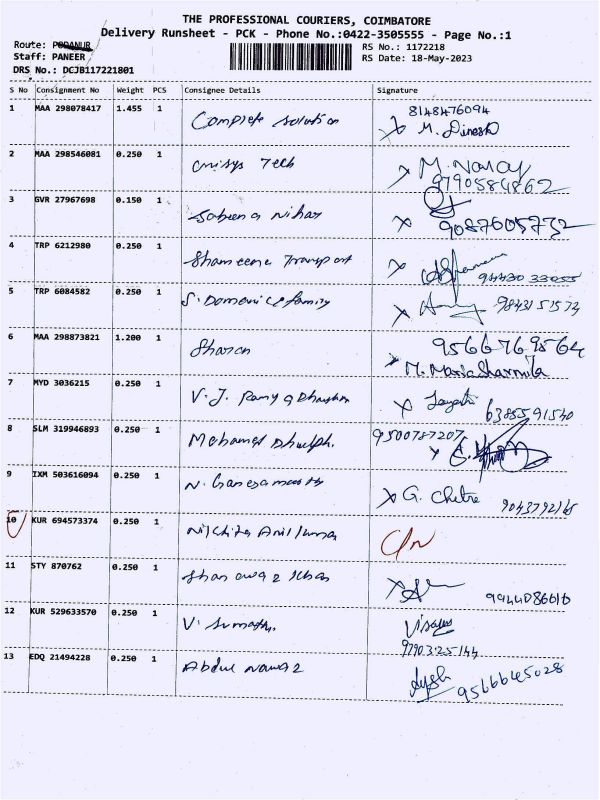 THE PROFESSIONAL COURIERS, COIMBATORE
Delivery Runsheet - PCK - Phone No.:0422-3505555 - Page No.:1
Route: PODANUR
RS No.: 1172218
Staff: PANEER
RS Date: 18-May-2023
DRS No.: DCJB117221801
S No Consignment No Weight PCS Consignee Details Signature
1 MAA 298078417 1.455 1 Complete solution 8148476094
M. Dinesh
2 MAA 298546081 0.250 1 Tech
9790584862
3 GVR 27967698 0.150 1 Sabeena Nihar 9087605732
4 TRP 6212980 0.250 1 Shameene Transport 94430 33055
5 TRP 6084582 0.250 1 S. Domenic family
6 MAA 298873821 1.200 1 Sharon 9566769564
M. Maria Sharmila
7 MYD 3036215 0.250 1 V. J. Ramya 6385591540
8 SLM 319946893 0.250 1 Mohamed 9500787207
9 IXM 503616094 0.250 1 N. Ganesamoorthy G. Chitra 9043792165
10 KUR 694573374 0.250 1
11 STY 870762 0.250 1 Shanawaz Khan 9944086610
12 KUR 529633570 0.250 1 V. Sumathi
9790325144
13 EDQ 21494228 0.250 1 Abdul Nawaz 9566645028